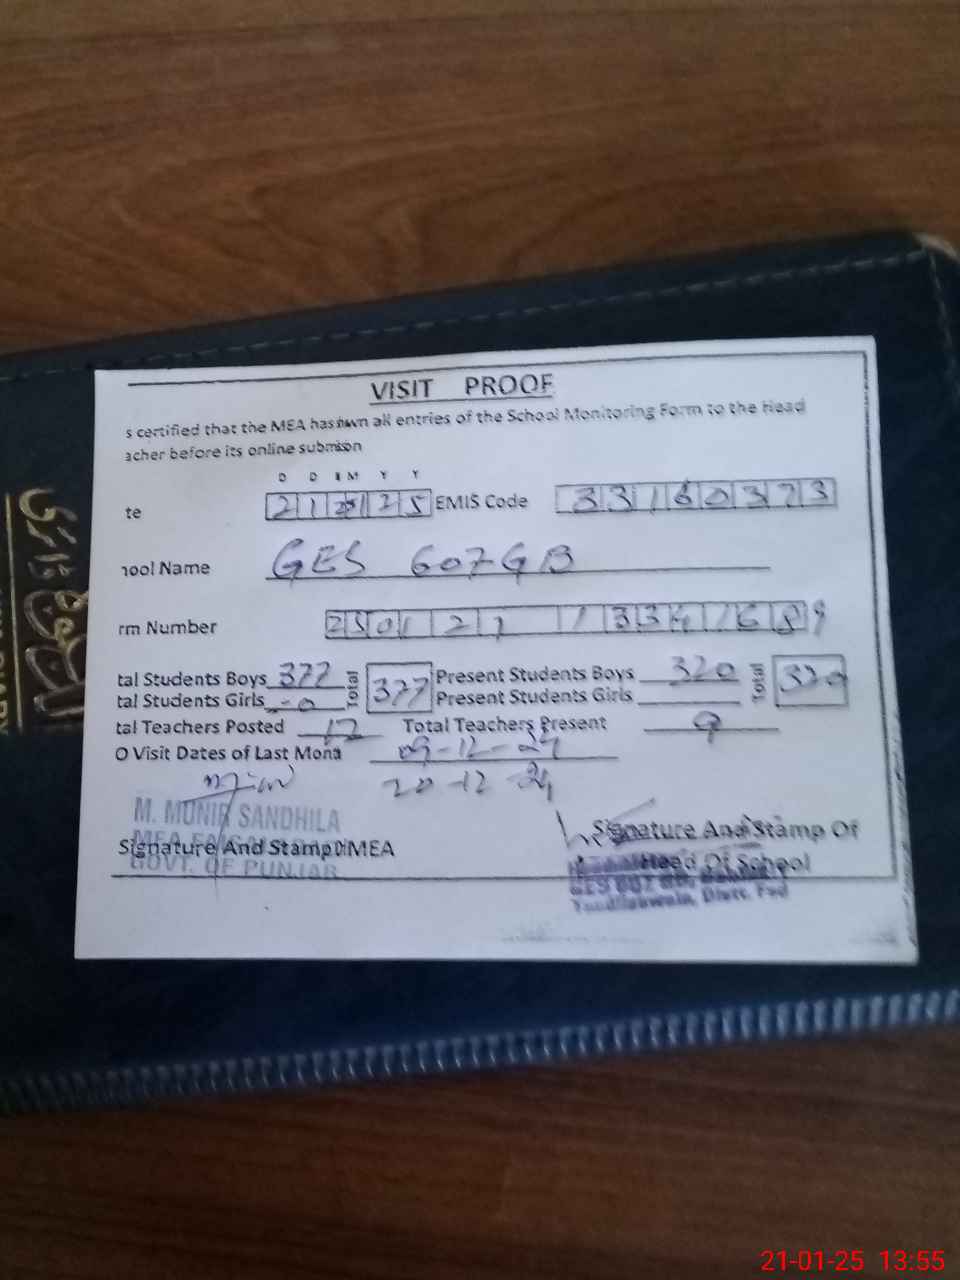 VISIT PROOF
s certified that the MEA has shown all entries of the School Monitoring Form to the Head
acher before its online submission
D D M M Y Y
te 210125 EMIS Code 33160373
hool Name GES 607 GB
rm Number 250121 13341689
tal Students Boys 377 Total 377 Present Students Boys 320 Total 320
tal Students Girls -0 Present Students Girls
tal Teachers Posted 12 Total Teachers Present 9
O Visit Dates of Last Mona 09-12-24
20-12-24
M. MUNIR SANDHILA
MEA FAISALABAD
GOVT. OF PUNJAB
Signature And Stamp Of MEA
Signature And Stamp Of
Head Of School
GES 607 GB,
Tandlianwala, Distt. Fsd
21-01-25 13:55